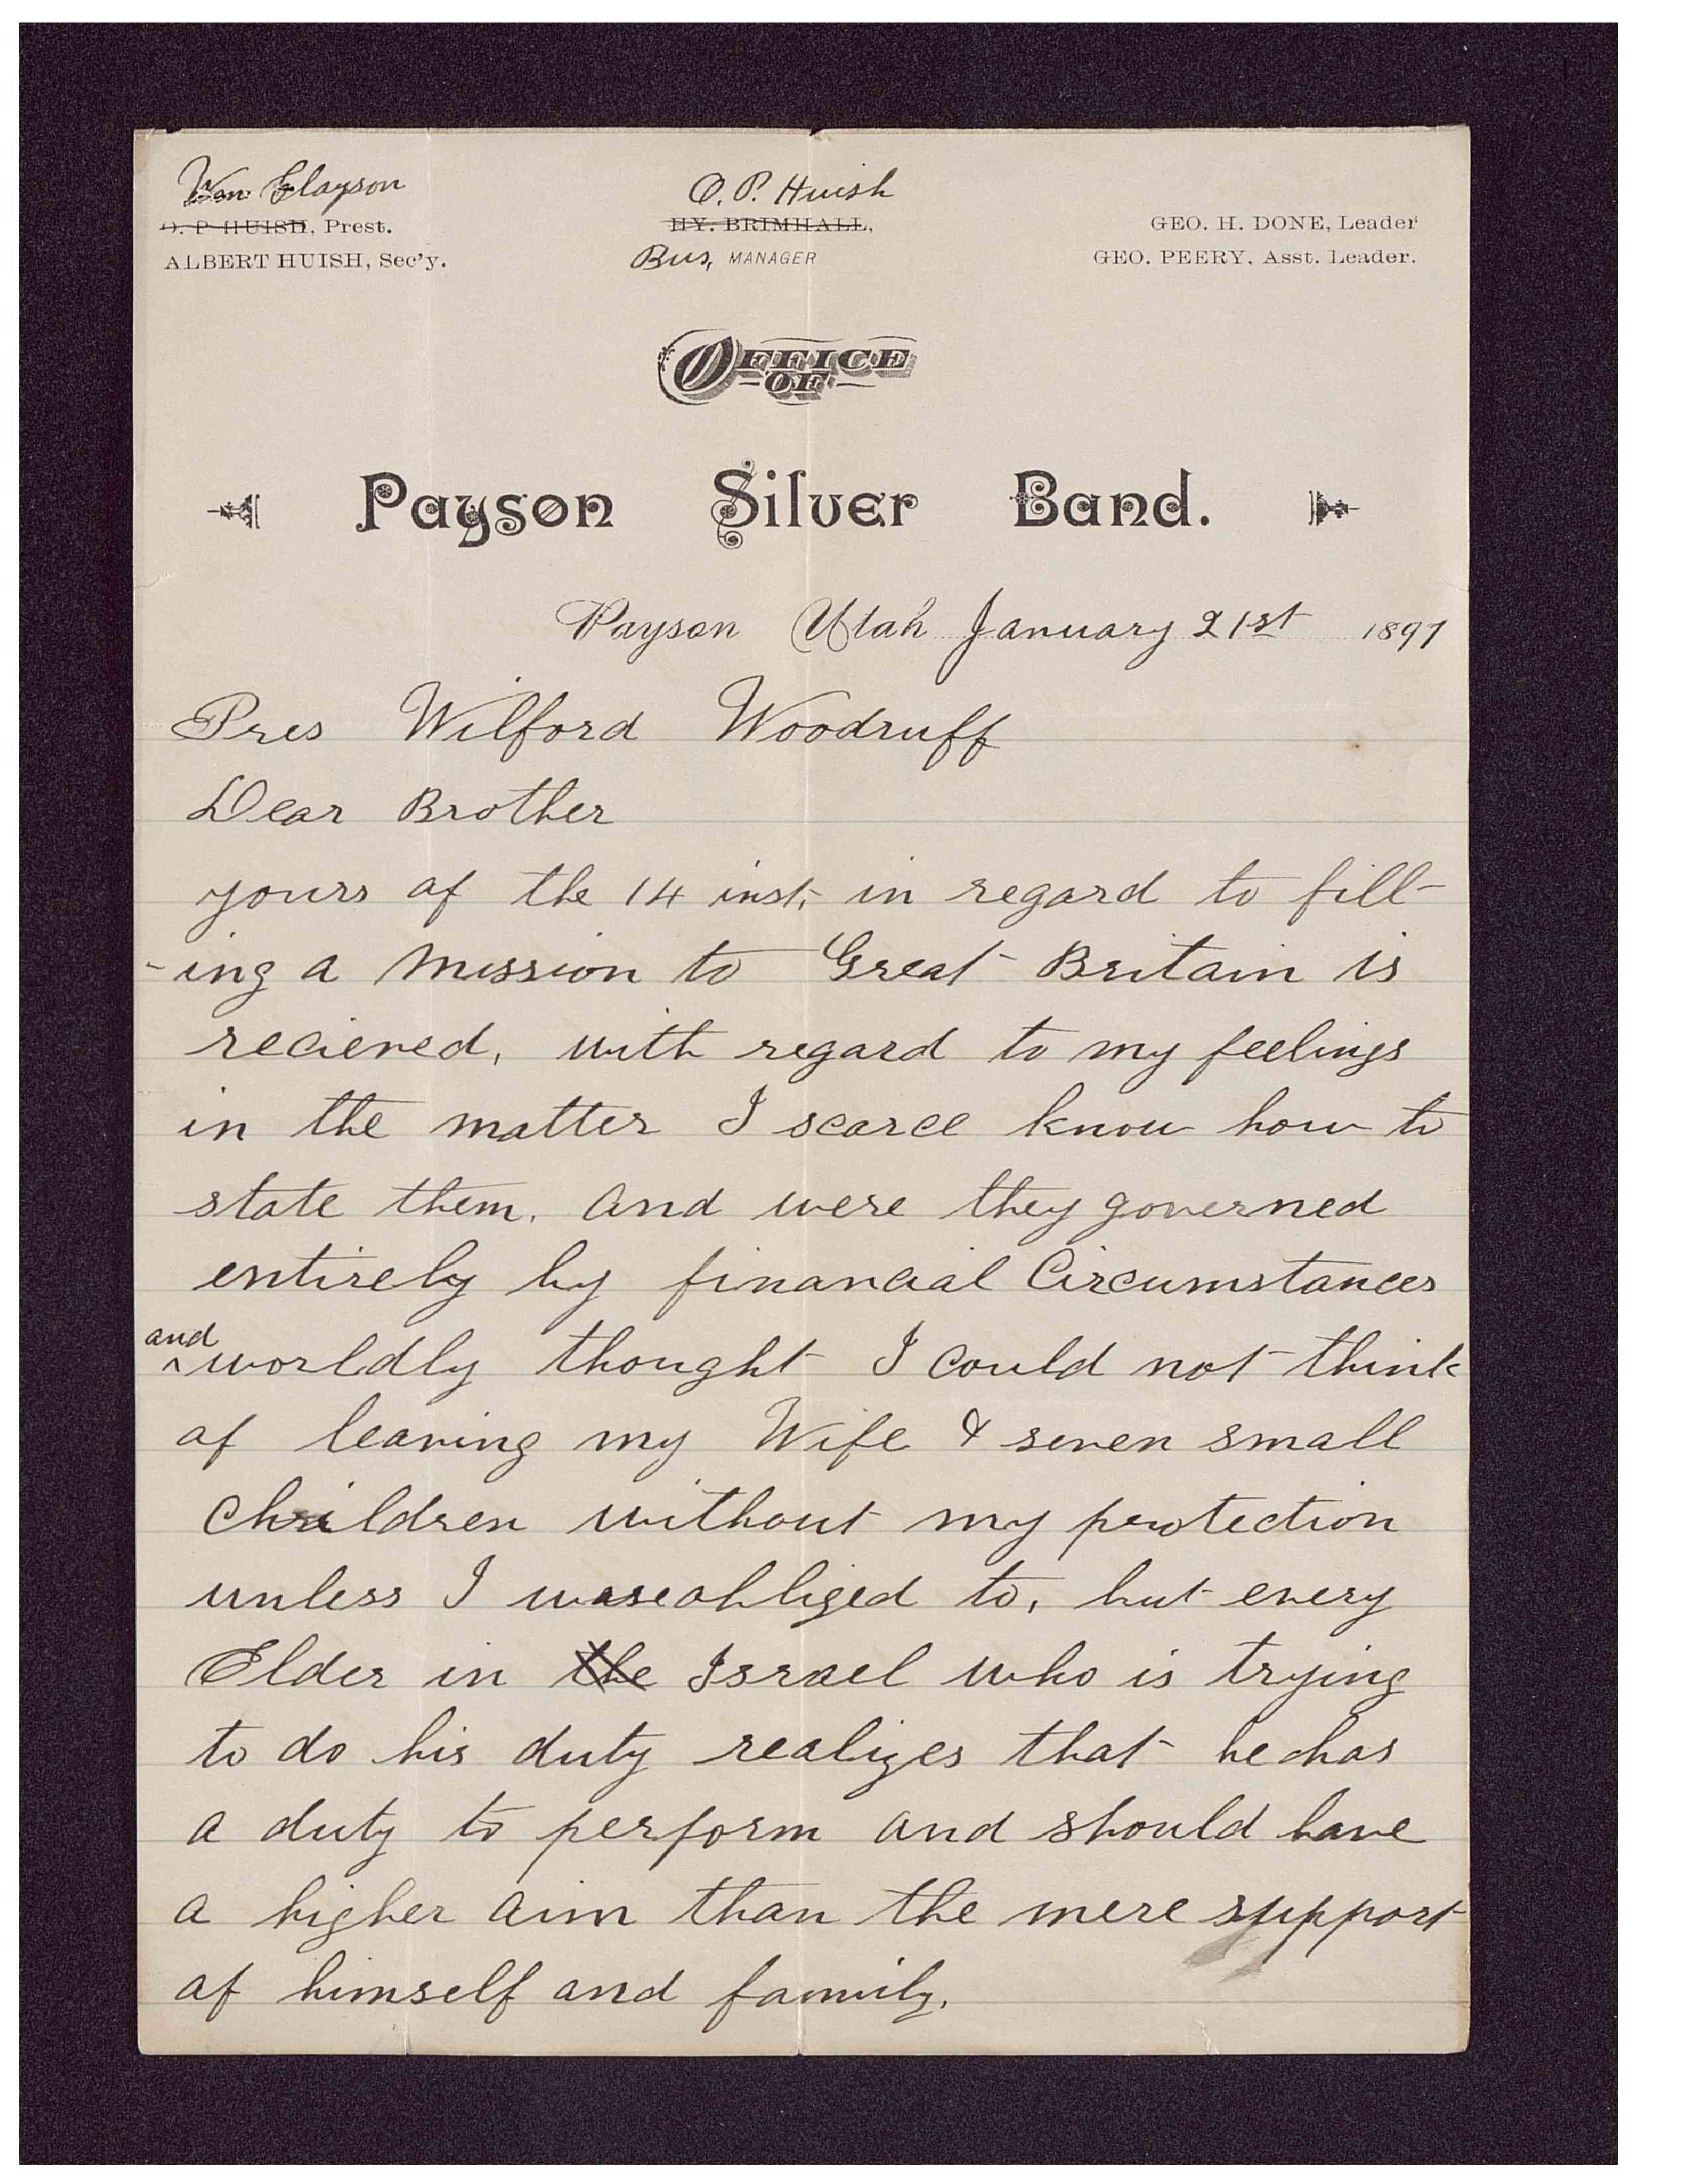 Wm Clayson
O. P. Huish
O. P HUISH, Prest.
HY. BRIMHALL,
GEO. H. DONE, Leader
ALBERT HUISH, Sec'y.
Bus, MANAGER
GEO. PEERY, Asst. Leader.
OFFICE
OF
Payson Silver Band.
Payson Utah January 21st 1897
Pres Wilford Woodruff
Dear Brother
yours of the 14 inst, in regard to fill-
-ing a mission to Great Britain is
recieved, with regard to my feelings
in the matter I scarce know how to
state them. and were they governed
entirely by financial Circumstances
and
^ worldly thought I could not think
of leaving my Wife & seven small
children without my protection
unless I was obliged to, but every
Elder in the Israel who is trying
to do his duty realizes that he has
a duty to perform and should have
a higher aim than the mere support
of himself and family.